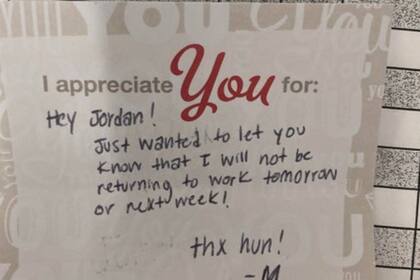 I appreciate You for:
Hey Jordan!
Just wanted to let you
know that I will not be
returning to work tomorrow
or next week!
thx hun!
- M